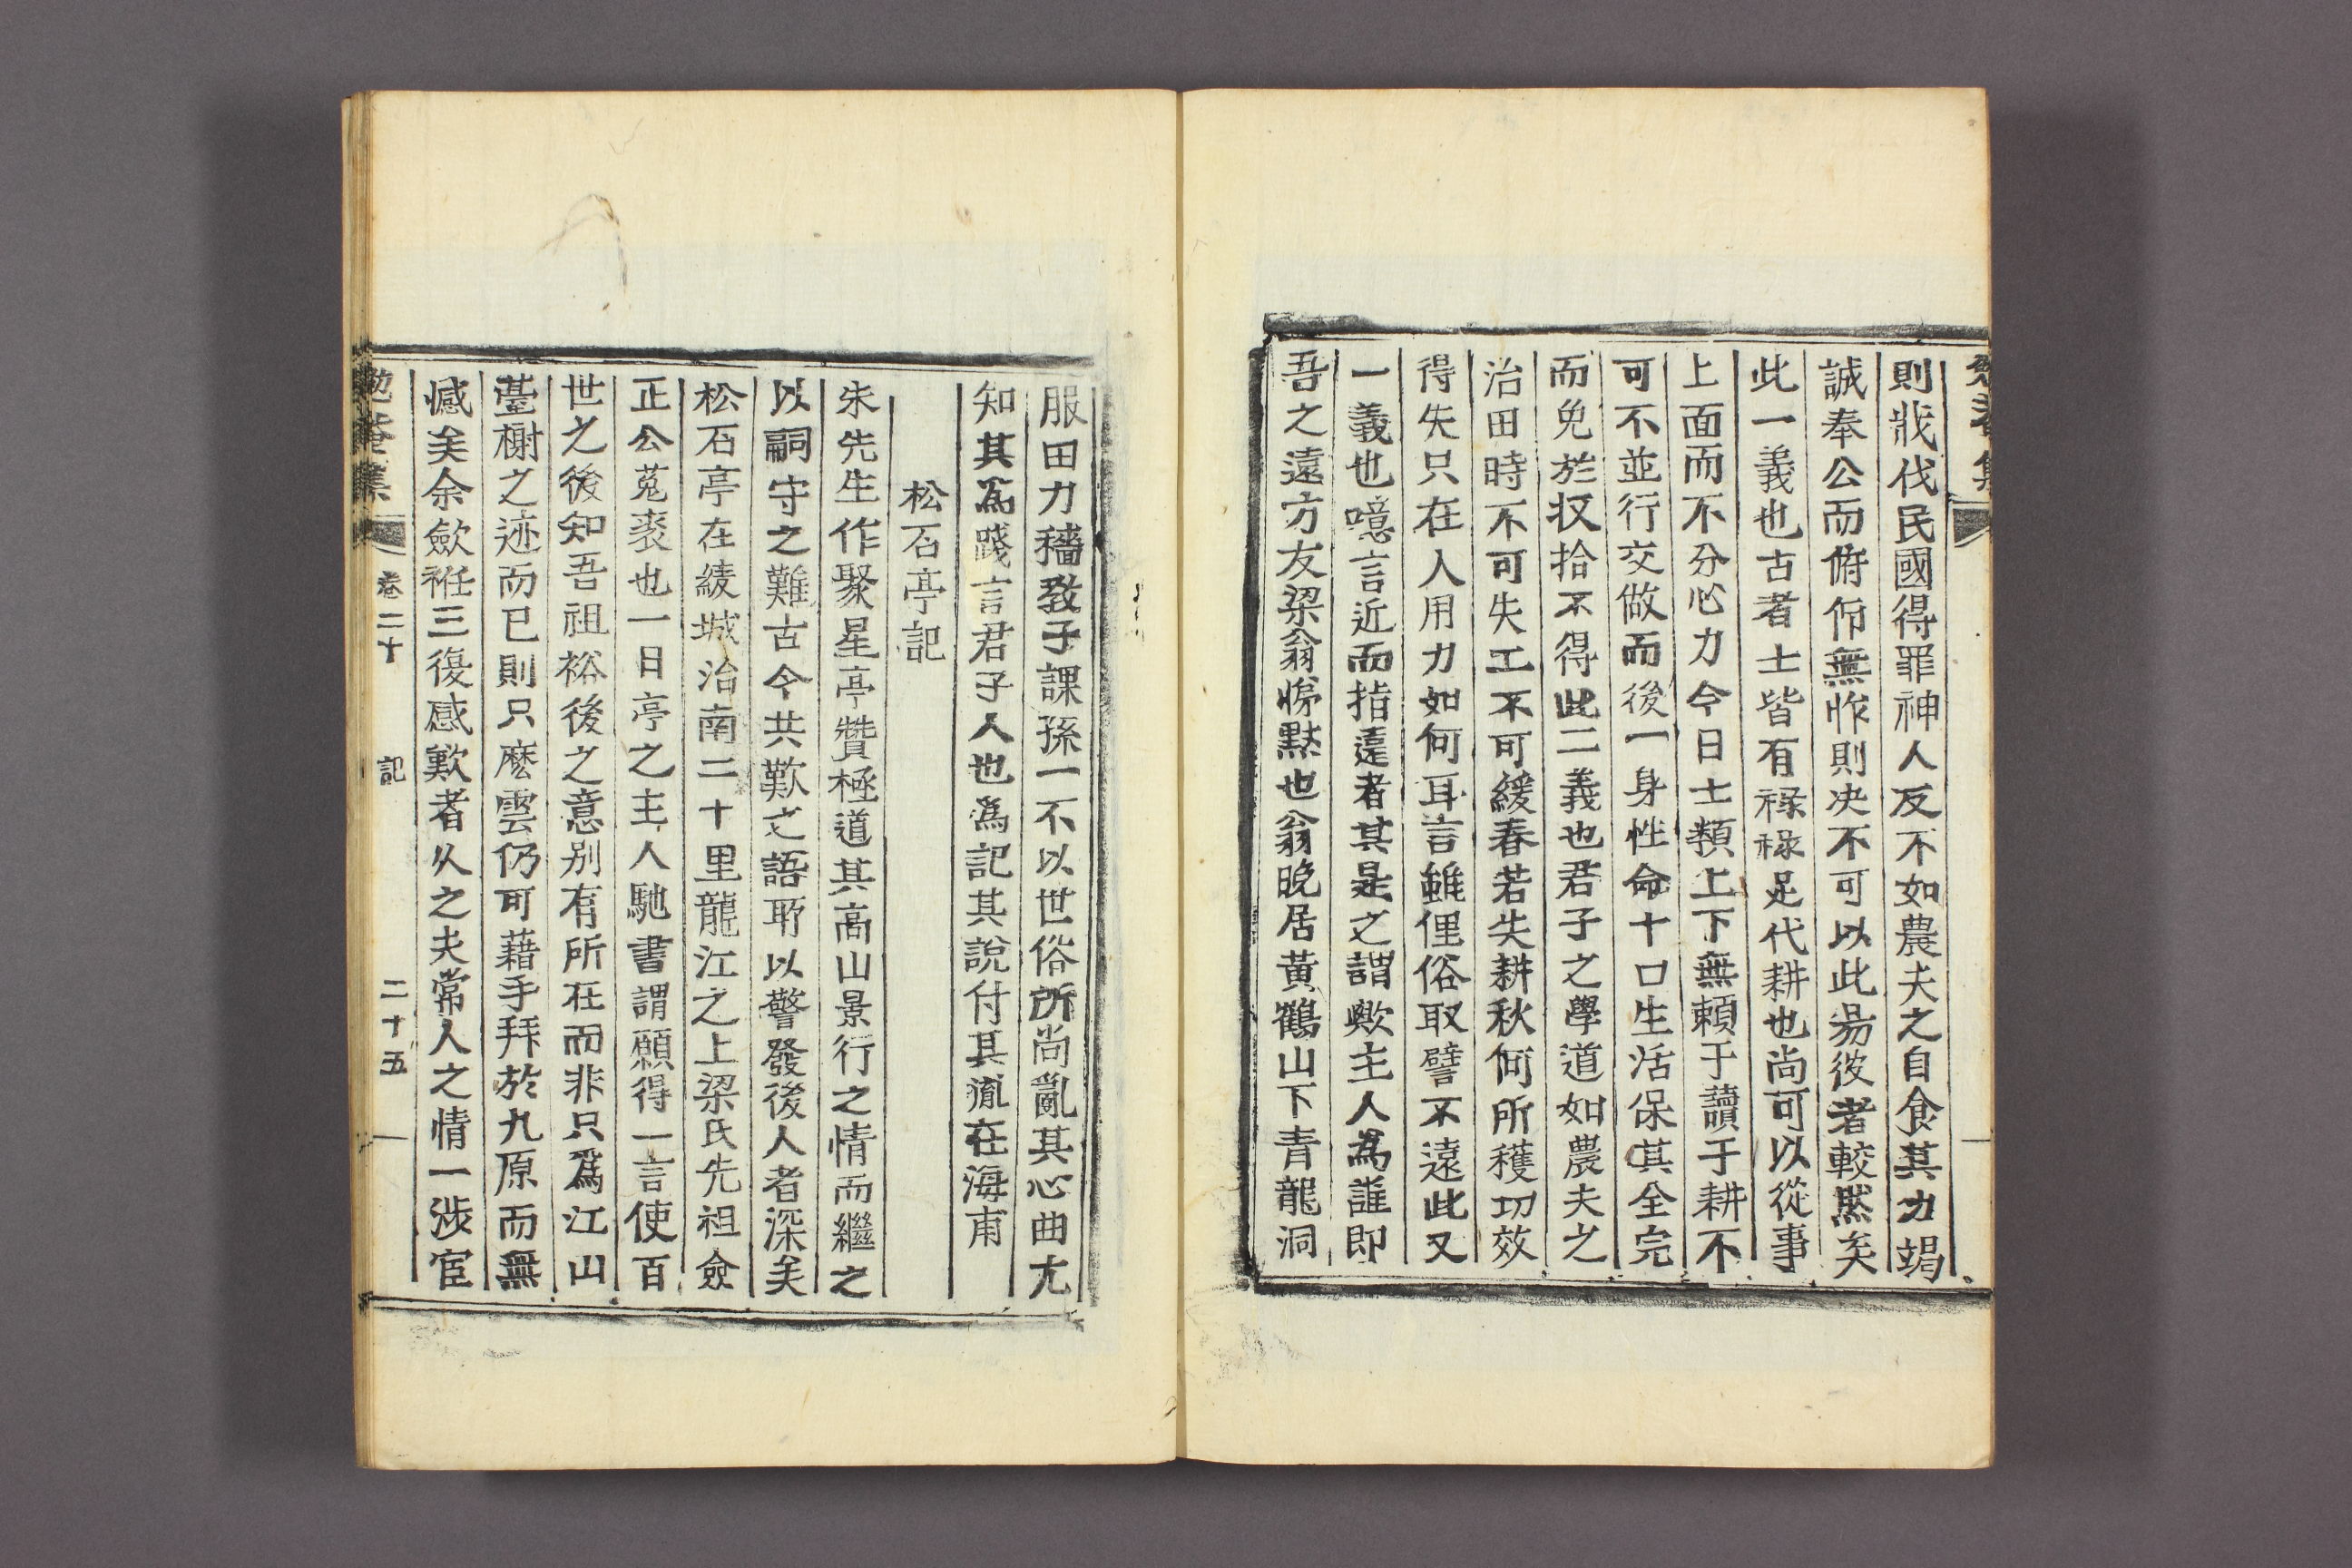 則戕伐民國得罪神人反不如農夫之自食其力竭
誠奉公而俯仰無怍則决不可以此易彼者較然矣
此一義也古者士皆有祿祿足代耕也尚可以從事
上面而不分心力今日士類上下無賴于讀于耕不
可不並行交做而後一身性命十口生活保其全完
而免於収拾不得此二義也君子之學道如農夫之
治田時不可失工不可緩春若失耕秋何所穫功效
得失只在人用力如何耳言雖俚俗取譬不遠此又
一義也噫言近而指遠者其是之謂歟主人為誰即
吾之遠方友梁翁悌黙也翁晩居黃鶴山下青龍洞
服田力穡敎子課孫一不以世俗所尚亂其心曲尤
知其爲踐言君子人也爲記其說付其胤在海甫
松石亭記
朱先生作聚星亭贊極道其高山景行之情而繼之
以嗣守之難古今共歎之語所以警發後人者深矣
松石亭在綾城治南二十里龍江之上梁氏先祖僉
正公菟裘也一日亭之主人馳書謂願得一言使百
世之後知吾祖裕後之意别有所在而非只爲江山
臺榭之迹而已則只麽雲仍可藉手拜於九原而無
憾矣余歛袵三復感歎者久之夫常人之情一涉宦
勉菴集 卷二十 記 二十五